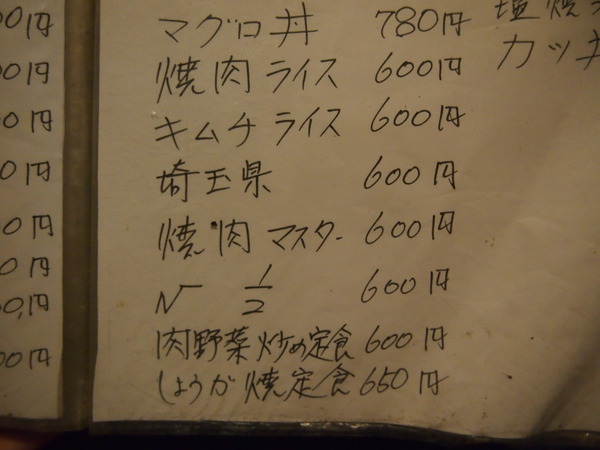 0円
00円
0円
0円
0円
0円
00円
00円
マグロ丼 780円
焼肉ライス 600円
キムチライス 600円
埼玉県 600円
焼肉マスター 600円
〃 1/2 600円
肉野菜炒め定食 600円
しょうが焼定食 650円
塩焼
カツ丼